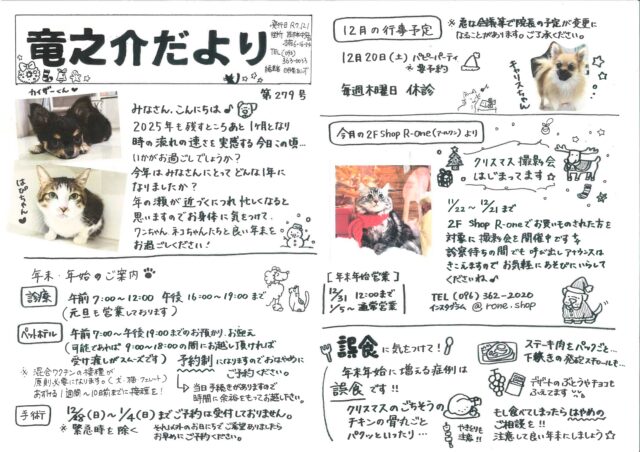 竜之介だより
発行日 R7.12.1
第279号
カイザーくん
はぴちゃん
みなさん、こんにちは♪
2025年も残すところあと1ヶ月となり
時の流れの速さを実感する今日この頃…
いかがお過ごしでしょうか?
今年はみなさんにとってどんな1年に
なりましたか?
年の瀬が近づくにつれ忙しくなると
思いますのでお身体に気をつけて、
ワンちゃん、ネコちゃんたちと良い年末を
お過ごしください!
年末・年始のご案内
診療 午前7:00~12:00 午後16:00~19:00まで
(元旦も営業しております)
ペットホテル 午前7:00~午後19:00までのお預かり、お迎え
(可能であれば9:00~18:00の間にお越し頂ければ
受け渡しがスムーズです) 予約制になりますのでお早めに
ご予約ください。
※混合ワクチンの接種が
原則必要になります。(犬・猫・フェレット)
あずける1週間~10日前までに接種を!
当日手続きがありますので
時間に余裕をもってお越し下さい。
手術 12/28(日)~1/4(日)までご予約は受付しておりません。
※緊急時を除く それ以外のお日にちでご希望ありましたら
お早めにご予約ください。
12月の行事予定
※急な会議等で院長の予定が変更に
なることがあります。ご了承ください。
12月20日(土) パピーパーティ
※要予約
毎週木曜日 休診
チャリスちゃん
今月の2F Shop R-one(アールワン)より
クリスマス撮影会
はじまってます☆
11/22~12/21まで
2F Shop R-oneでお買いものされた方を
対象に撮影会を開催中です
診察待ちの間でも呼び出しアナウンスは
きこえますのでお気軽にあそびにいらして
くださいね。
TEL (096) 362-2020
インスタグラム @rone.shop
[年末年始営業]
12/31 12:00まで
1/5~通常営業
誤食に気をつけて!
年末年始に増える症例は
誤食です!!
クリスマスのごちそうの
チキンの骨丸ごと
パクッといったり…
やきとりも
注意!!
ステーキ肉をパックごと…
下敷きの発砲スチロールも…
デザートのぶどうやチョコも
ふえてます
もし食べてしまったらはやめの
ご相談を!!
注意して良い年末にしましょう☆